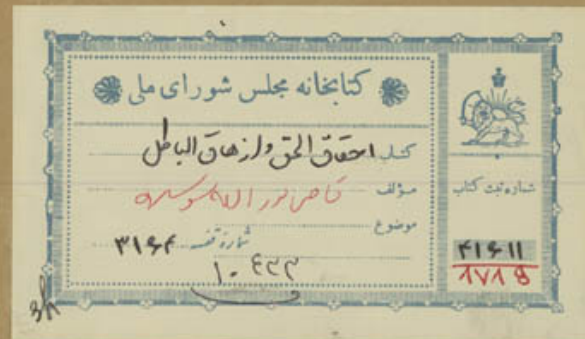 کتابخانه مجلس شورای ملی
کتاب احقاق الحق و ازهاق الباطل
مؤلف قاضی نور الله شوستری
موضوع
شماره قفسه ۳۱۶۴
۱۰۴۳۳
شماره ثبت کتاب
۴۱۶۱۱